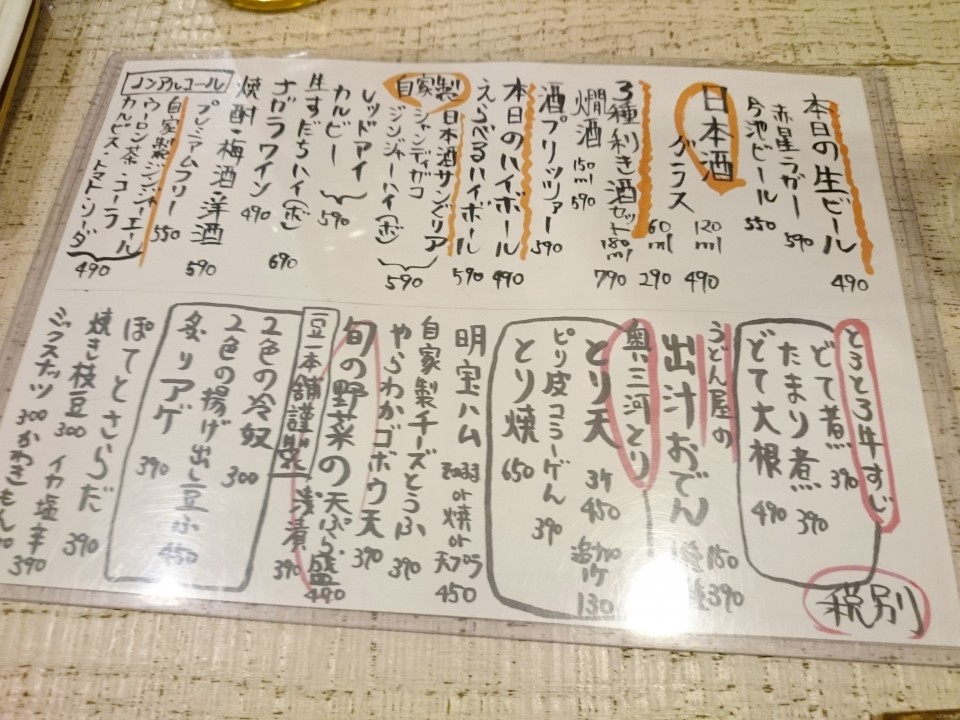 本日の生ビール 490
赤星ラガー 590
今池ビール 550
日本酒
グラス
120ml 490
60ml 290
3種利き酒セット 180ml 790
燗酒 150ml 590
酒プリッツァー 590
本日のハイボール 490
えらべるハイボール 590
自家製
日本酒サングリア
シャンディガコ
ジンジャーハイ(ボ)
590
レッドアイ
カルビー
590
生すだちハイ(ボ) 690
ナガラワイン 490
焼酎・梅酒・洋酒 590
ノンアルコール
プレミアムフリー 550
自家製ジンジャーエール
ウーロン茶・コーラ
カルピス・トマト・ソーダ
490
とろとろ牛すじ
どて煮 390
たまり煮 390
どて大根 490
うどん屋の
出汁おでん
150
390
奥三河とり
とり天 3ケ 450
追加1ケ 130
ピリ皮コラーゲん 390
とり焼 650
明宝ハム そのまま or 焼 or 天プラ 450
自家製チーズとうふ 390
やらわかゴボウ天 390
旬の野菜の天ぷら盛 490
浅漬 390
豆一本舗謹製
2色の冷奴 300
2色の揚げ出し豆ふ 450
炙りアゲ 390
ぽてとさらだ 390
焼き枝豆 300
イカ塩辛 390
ミックスナッツ 300
かわきもん 390
税別